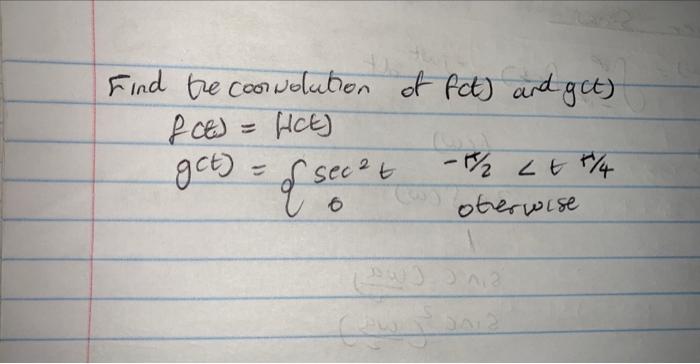 Find the convolution of f(t) and g(t)
f(t) = H(t)
g(t) = { sec² t   -π/2 < t π/4
0   otherwise